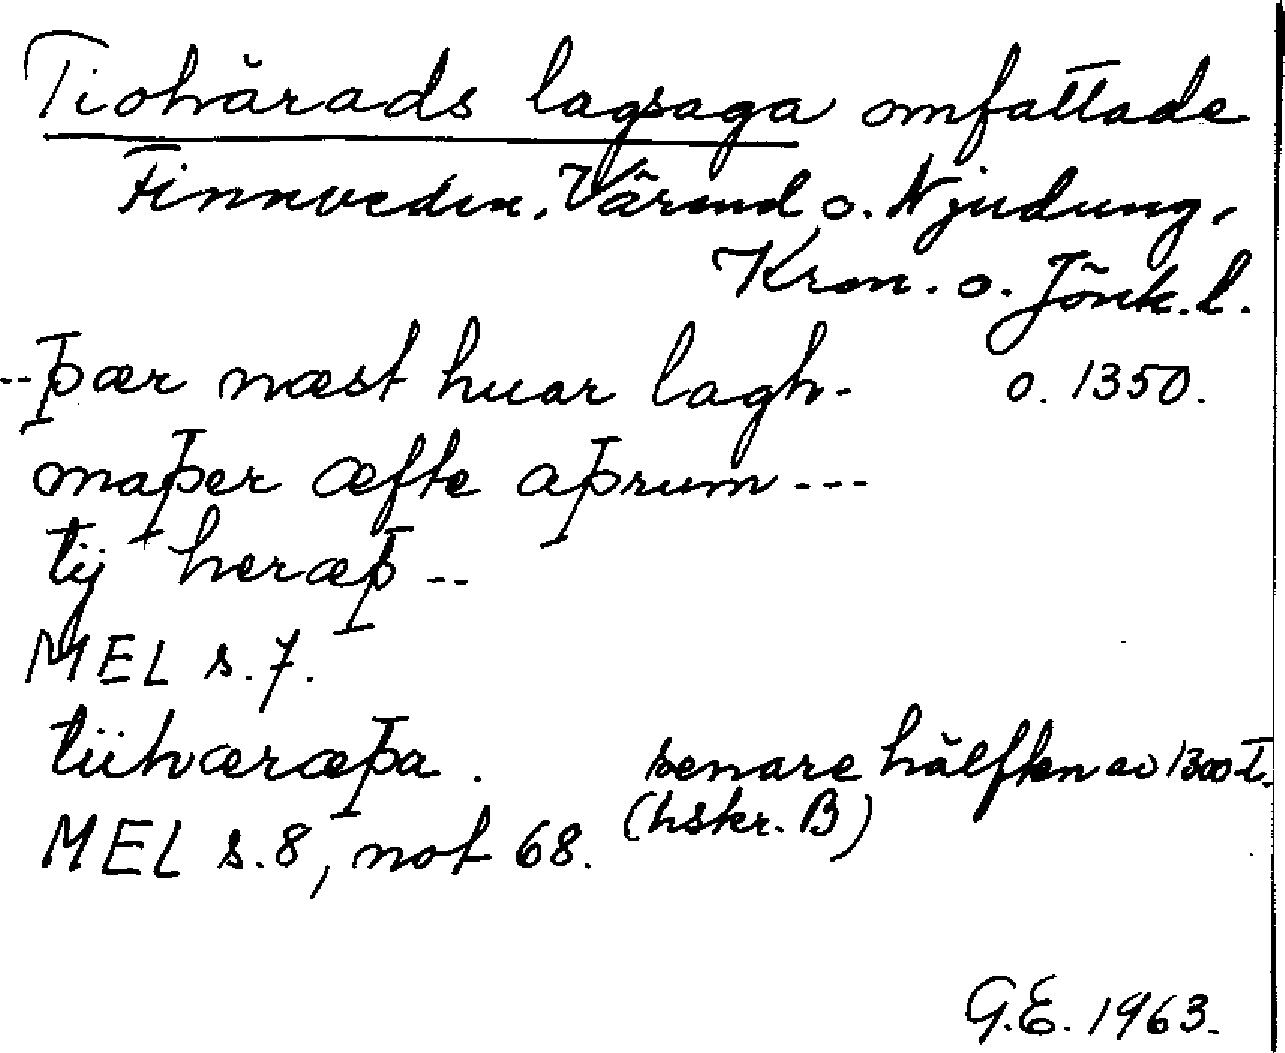 Tiohärads lagsaga omfattade
Finnveden, Värend o. Njudung,
Kron. o. Jönk. l.
--þær næst huar lagh- o. 1350.
maþer æfte aþrum ---
tij heræþ --
MEL s. 7.
tiihæræþa. senare hälften av 1300-t.
MEL s. 8, not 68. (hskr. B)
G.E. 1963.